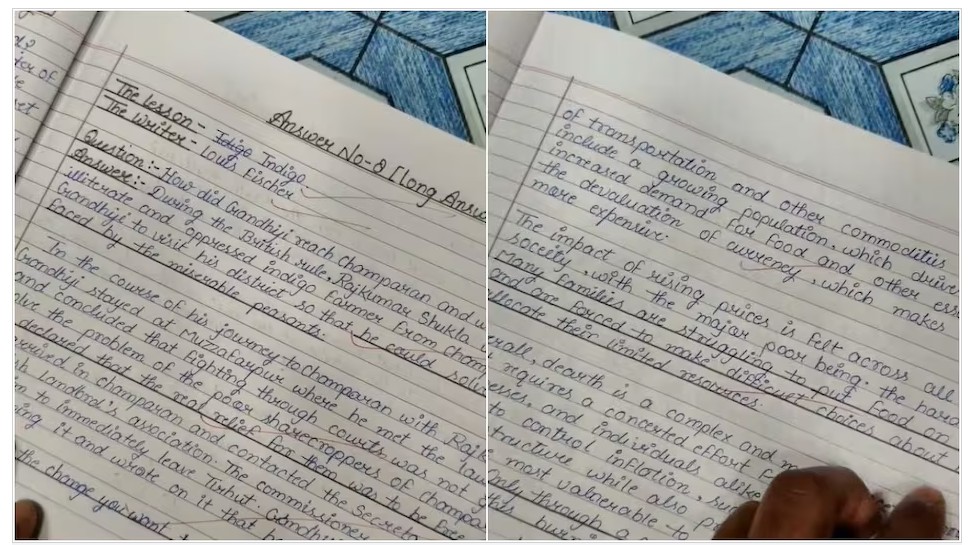 Answer No-8 [Long Answ
The lesson - Indigo Indigo
The writer - Louis Fischer
Question:- How did Gandhiji reach Champaran and w
Answere:- During the British rule, Rajkumar Shukla
illiterate and oppressed indigo farmer from Cham
Gandhiji to visit his district so that he could solv
faced by the miserable peasants.
In the course of his journey to Champaran with Rajk
Gandhiji stayed at Muzzafarpur where he met the law
and concluded that fighting through courts was not
lve the problem of the poor sharecroppers of champa
declared that the real relief for them was to be free
arrived in champaran and contact the Secret
h Landlord's association. The commissioner
n to immediately leave Tirhut. Gandhi
ing it and wrote on it that he
the change you want
of transportation and other commodities
include a growing population, which drive
increased demand for food and other ess
the devaluation of currency, which makes
more expensive.
The impact of rising prices is felt across all
society, with the major poor being. the hard
Many families are struggling to put food on
and are forced to make difficult choices about
llocate their limited resources.
rall, dearth is a complex and m
requires a concerted effort f
esses, and individuals alike
to control inflation, suc
structure while also p
most valnerable to
Only through a
this bur